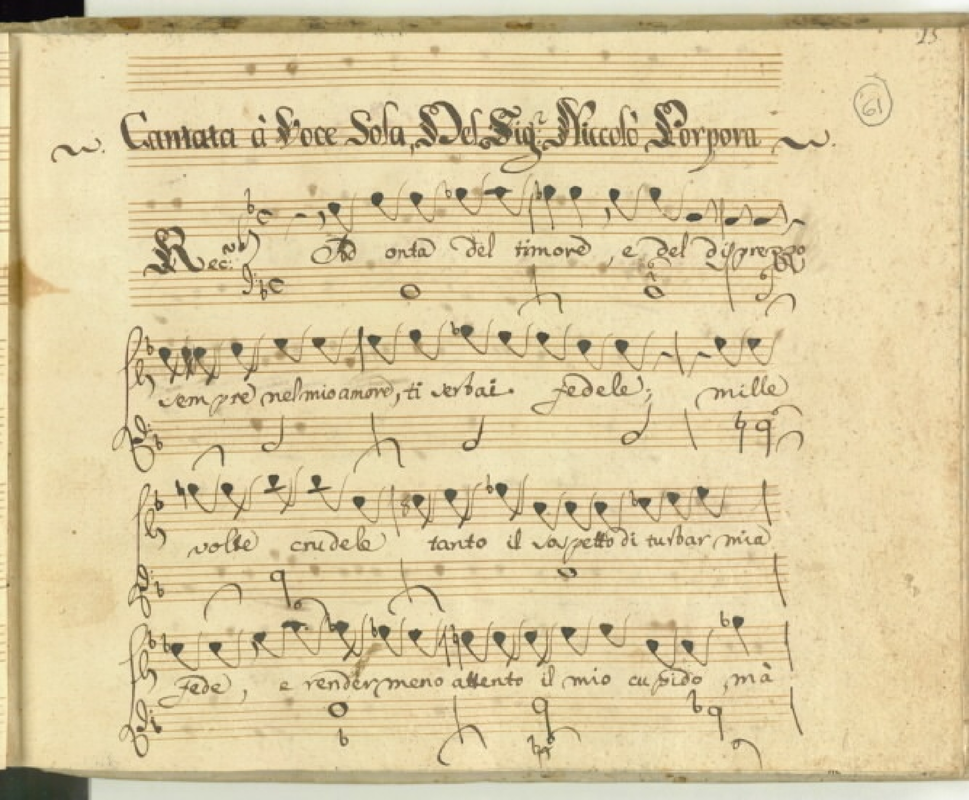 15
61
Cantata à Voce Sola, Del Sig.r Niccolò Porpora
Rec: Ad onta del timore, e del disprezzo
sempre nel mio amore, ti serbai fedele; mille
volte crudele tanto il sospetto di turbar mia
fede, e render meno attento il mio cupido, mà